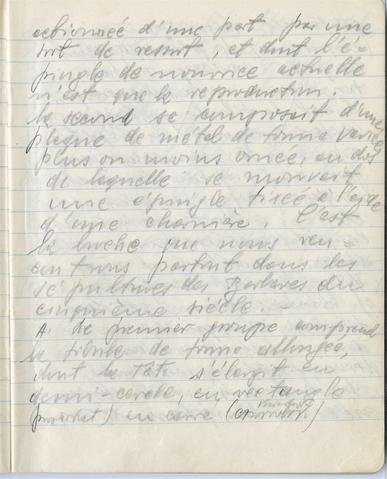 actionnée d'une part par une
sort de ressort, et dont l'é-
pingle de nourrice actuelle
n'est que la reproduction.
la second se composait d'une
plaque de métal de forme variée
plus ou moins ornée, au dos
de laquelle se mouvait
une épingle fixée à l'aide
d'une charnière. C'est
la broche que nous ren-
controns partout dans les
sépultures des Barbares du
cinquième siècle. -
A. Le premier groupe comprend
la fibule de forme allongée,
dont la tête s'élargit en
demi-cercle, en rectangle
ou en carré